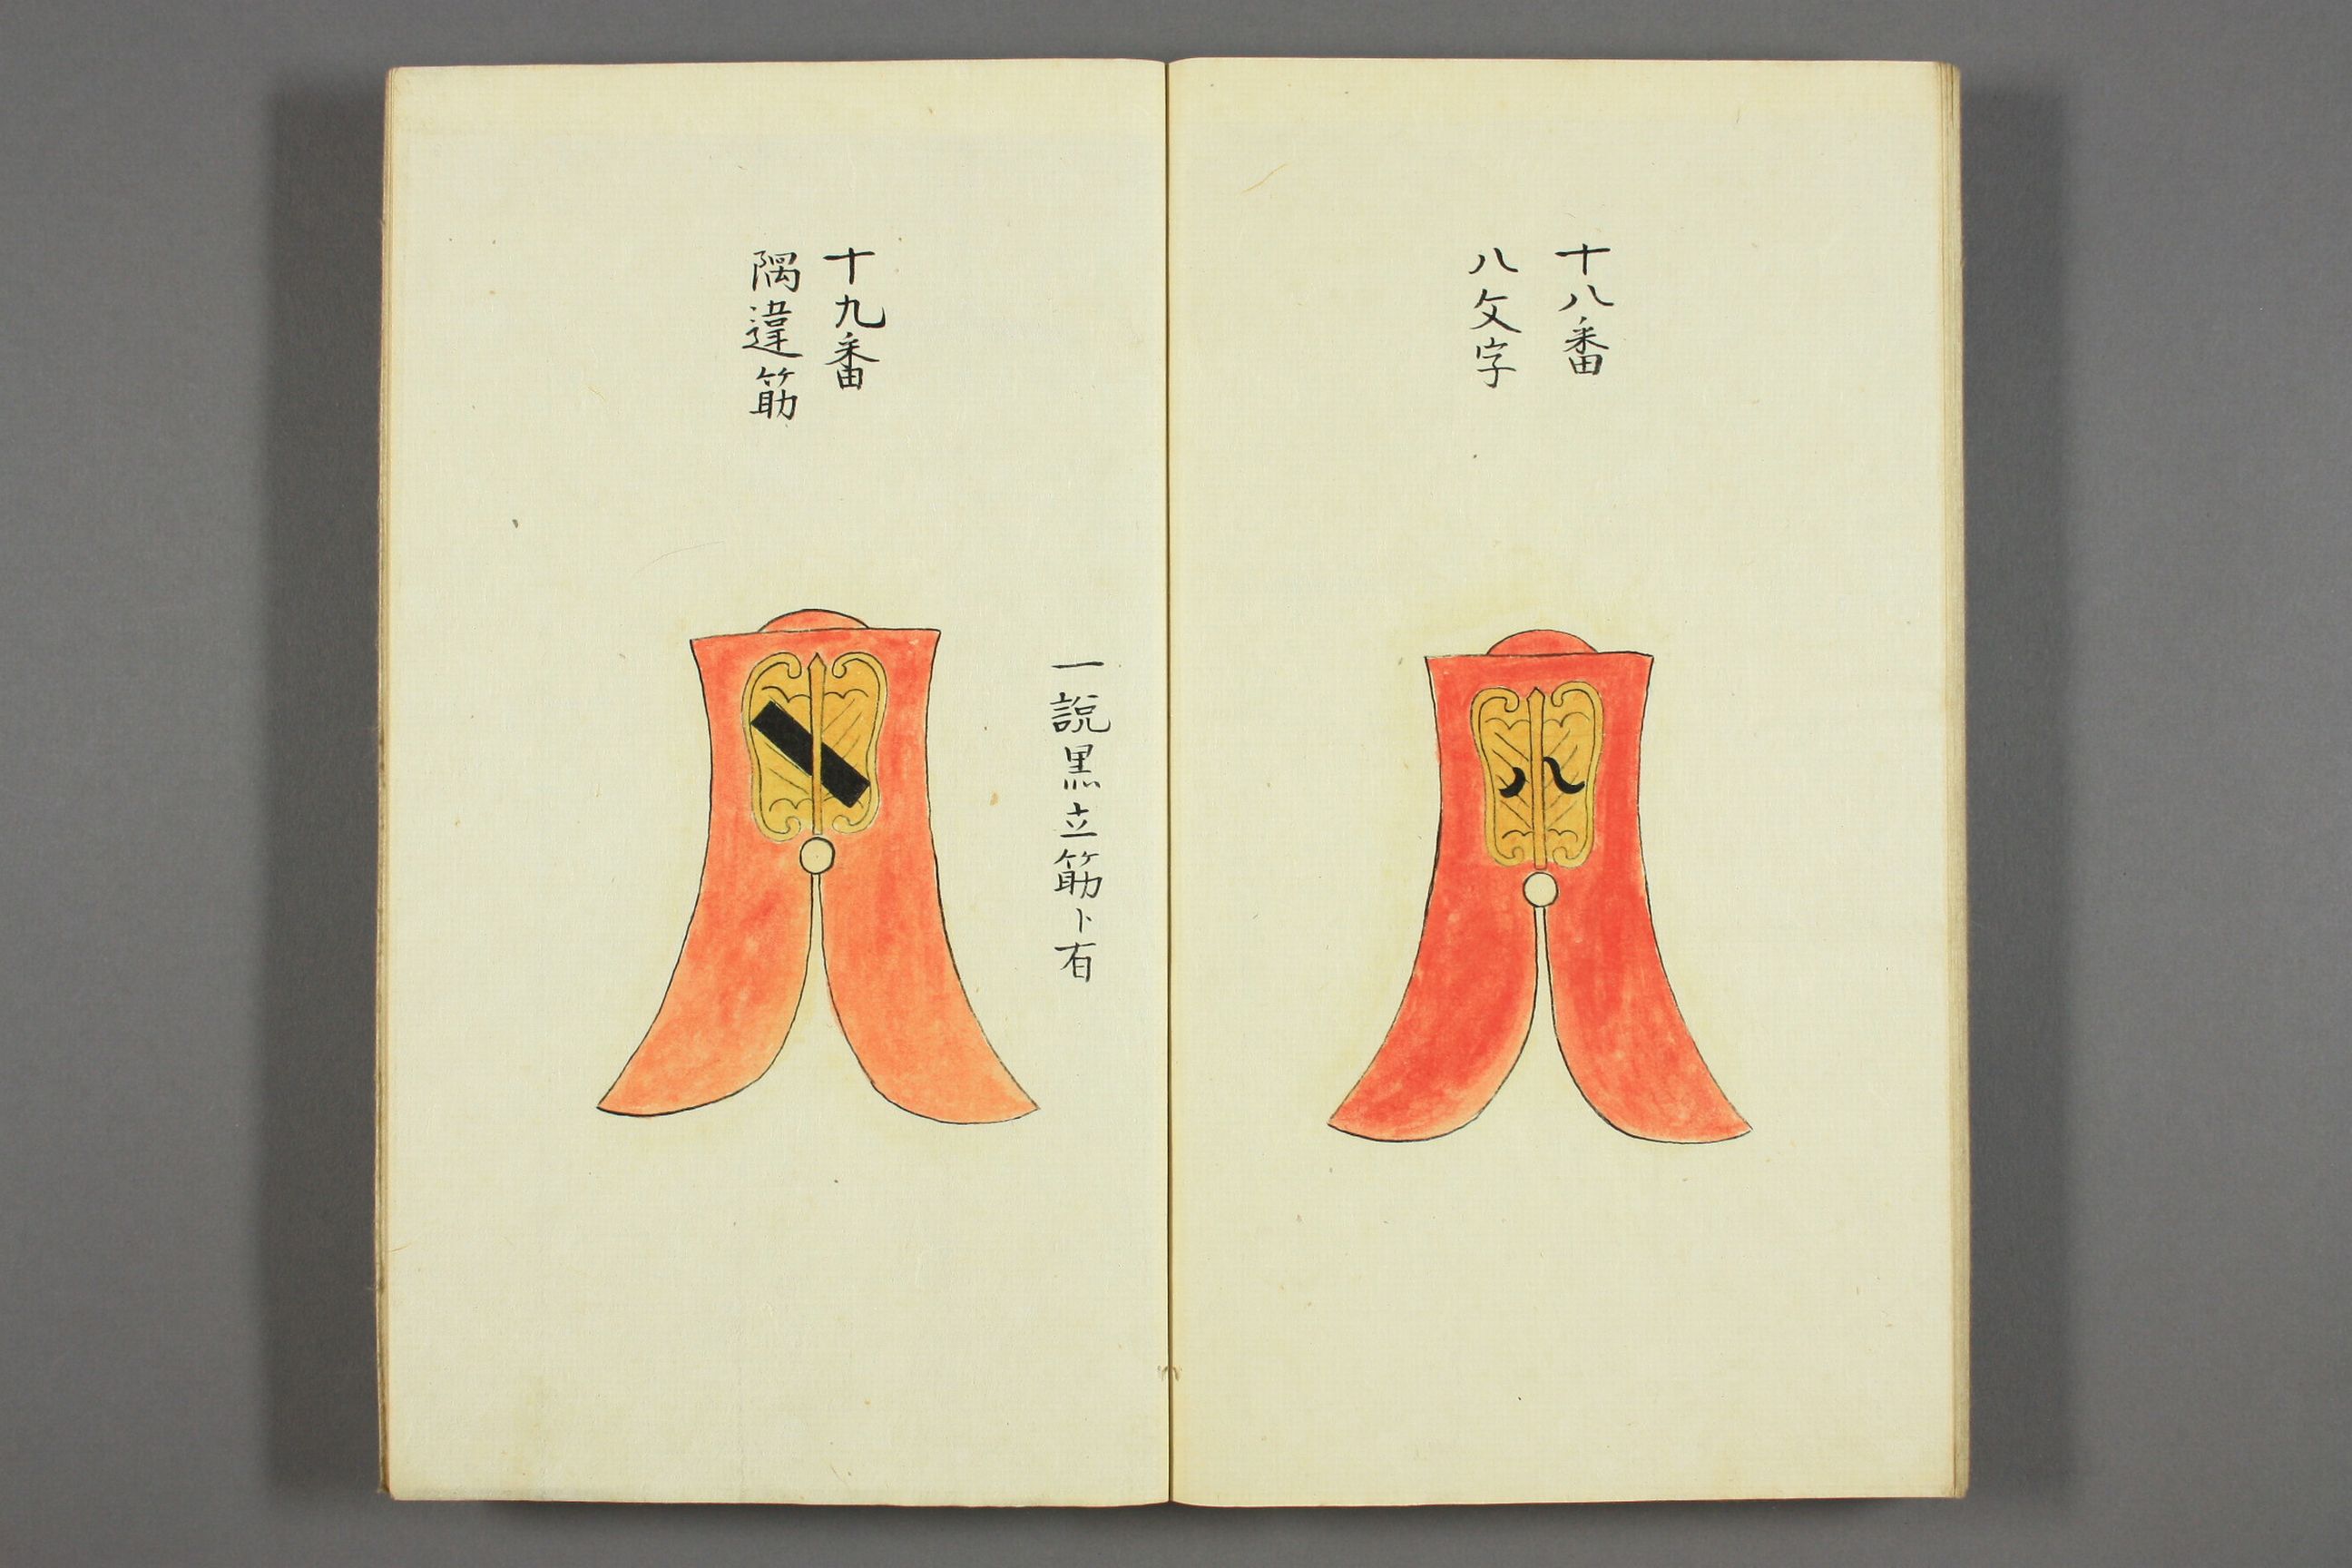 十八番
八文字
一説黒立筋ト有
十九番
隅違筋